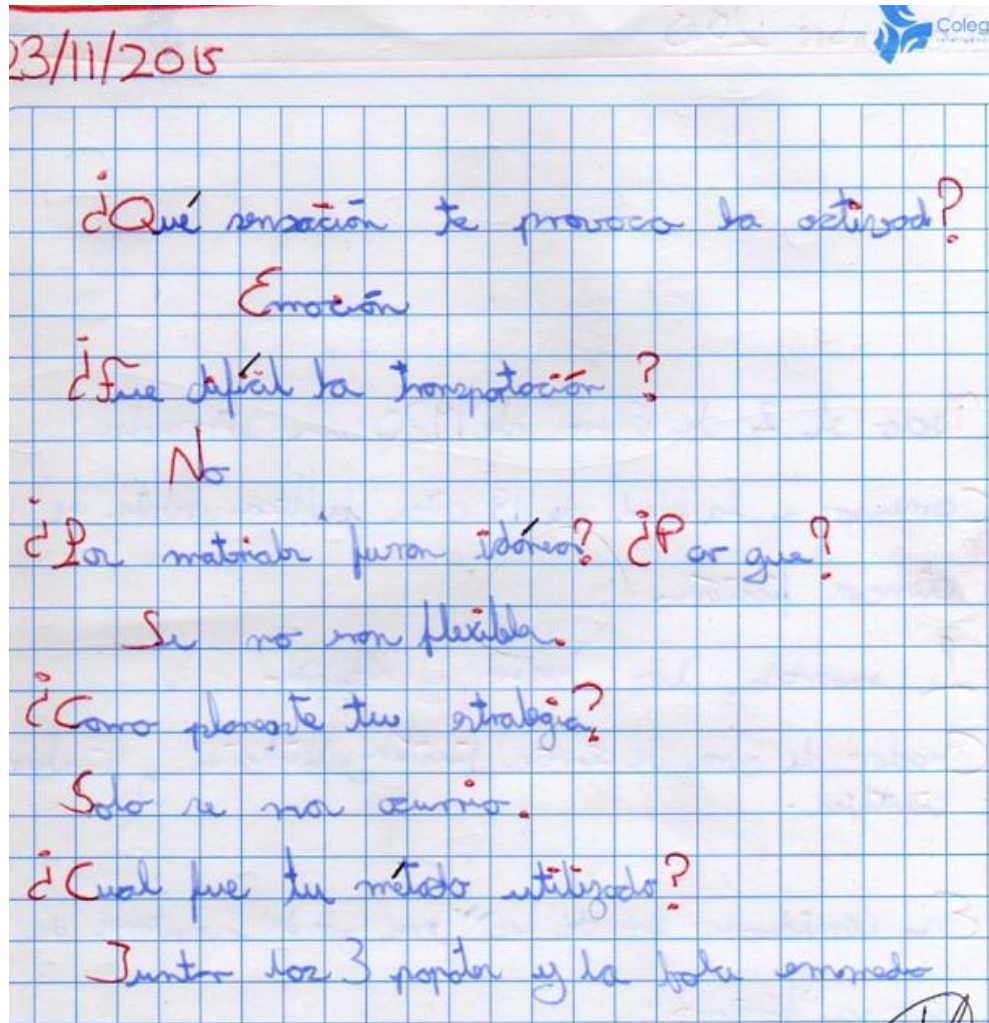 Coleg
23/11/2015
¿Qué sensación te provoco la activad?
Emoción
¿Fue difícil la transportación ?
No
¿Los materiales fueron idóneos? ¿Por que?
Se no son flexibles.
¿Como planeaste tu estrategia?
Solo se nos ocurrio.
¿Cual fue tu método utilizado?
Juntar los 3 papeles y la bola enmedo